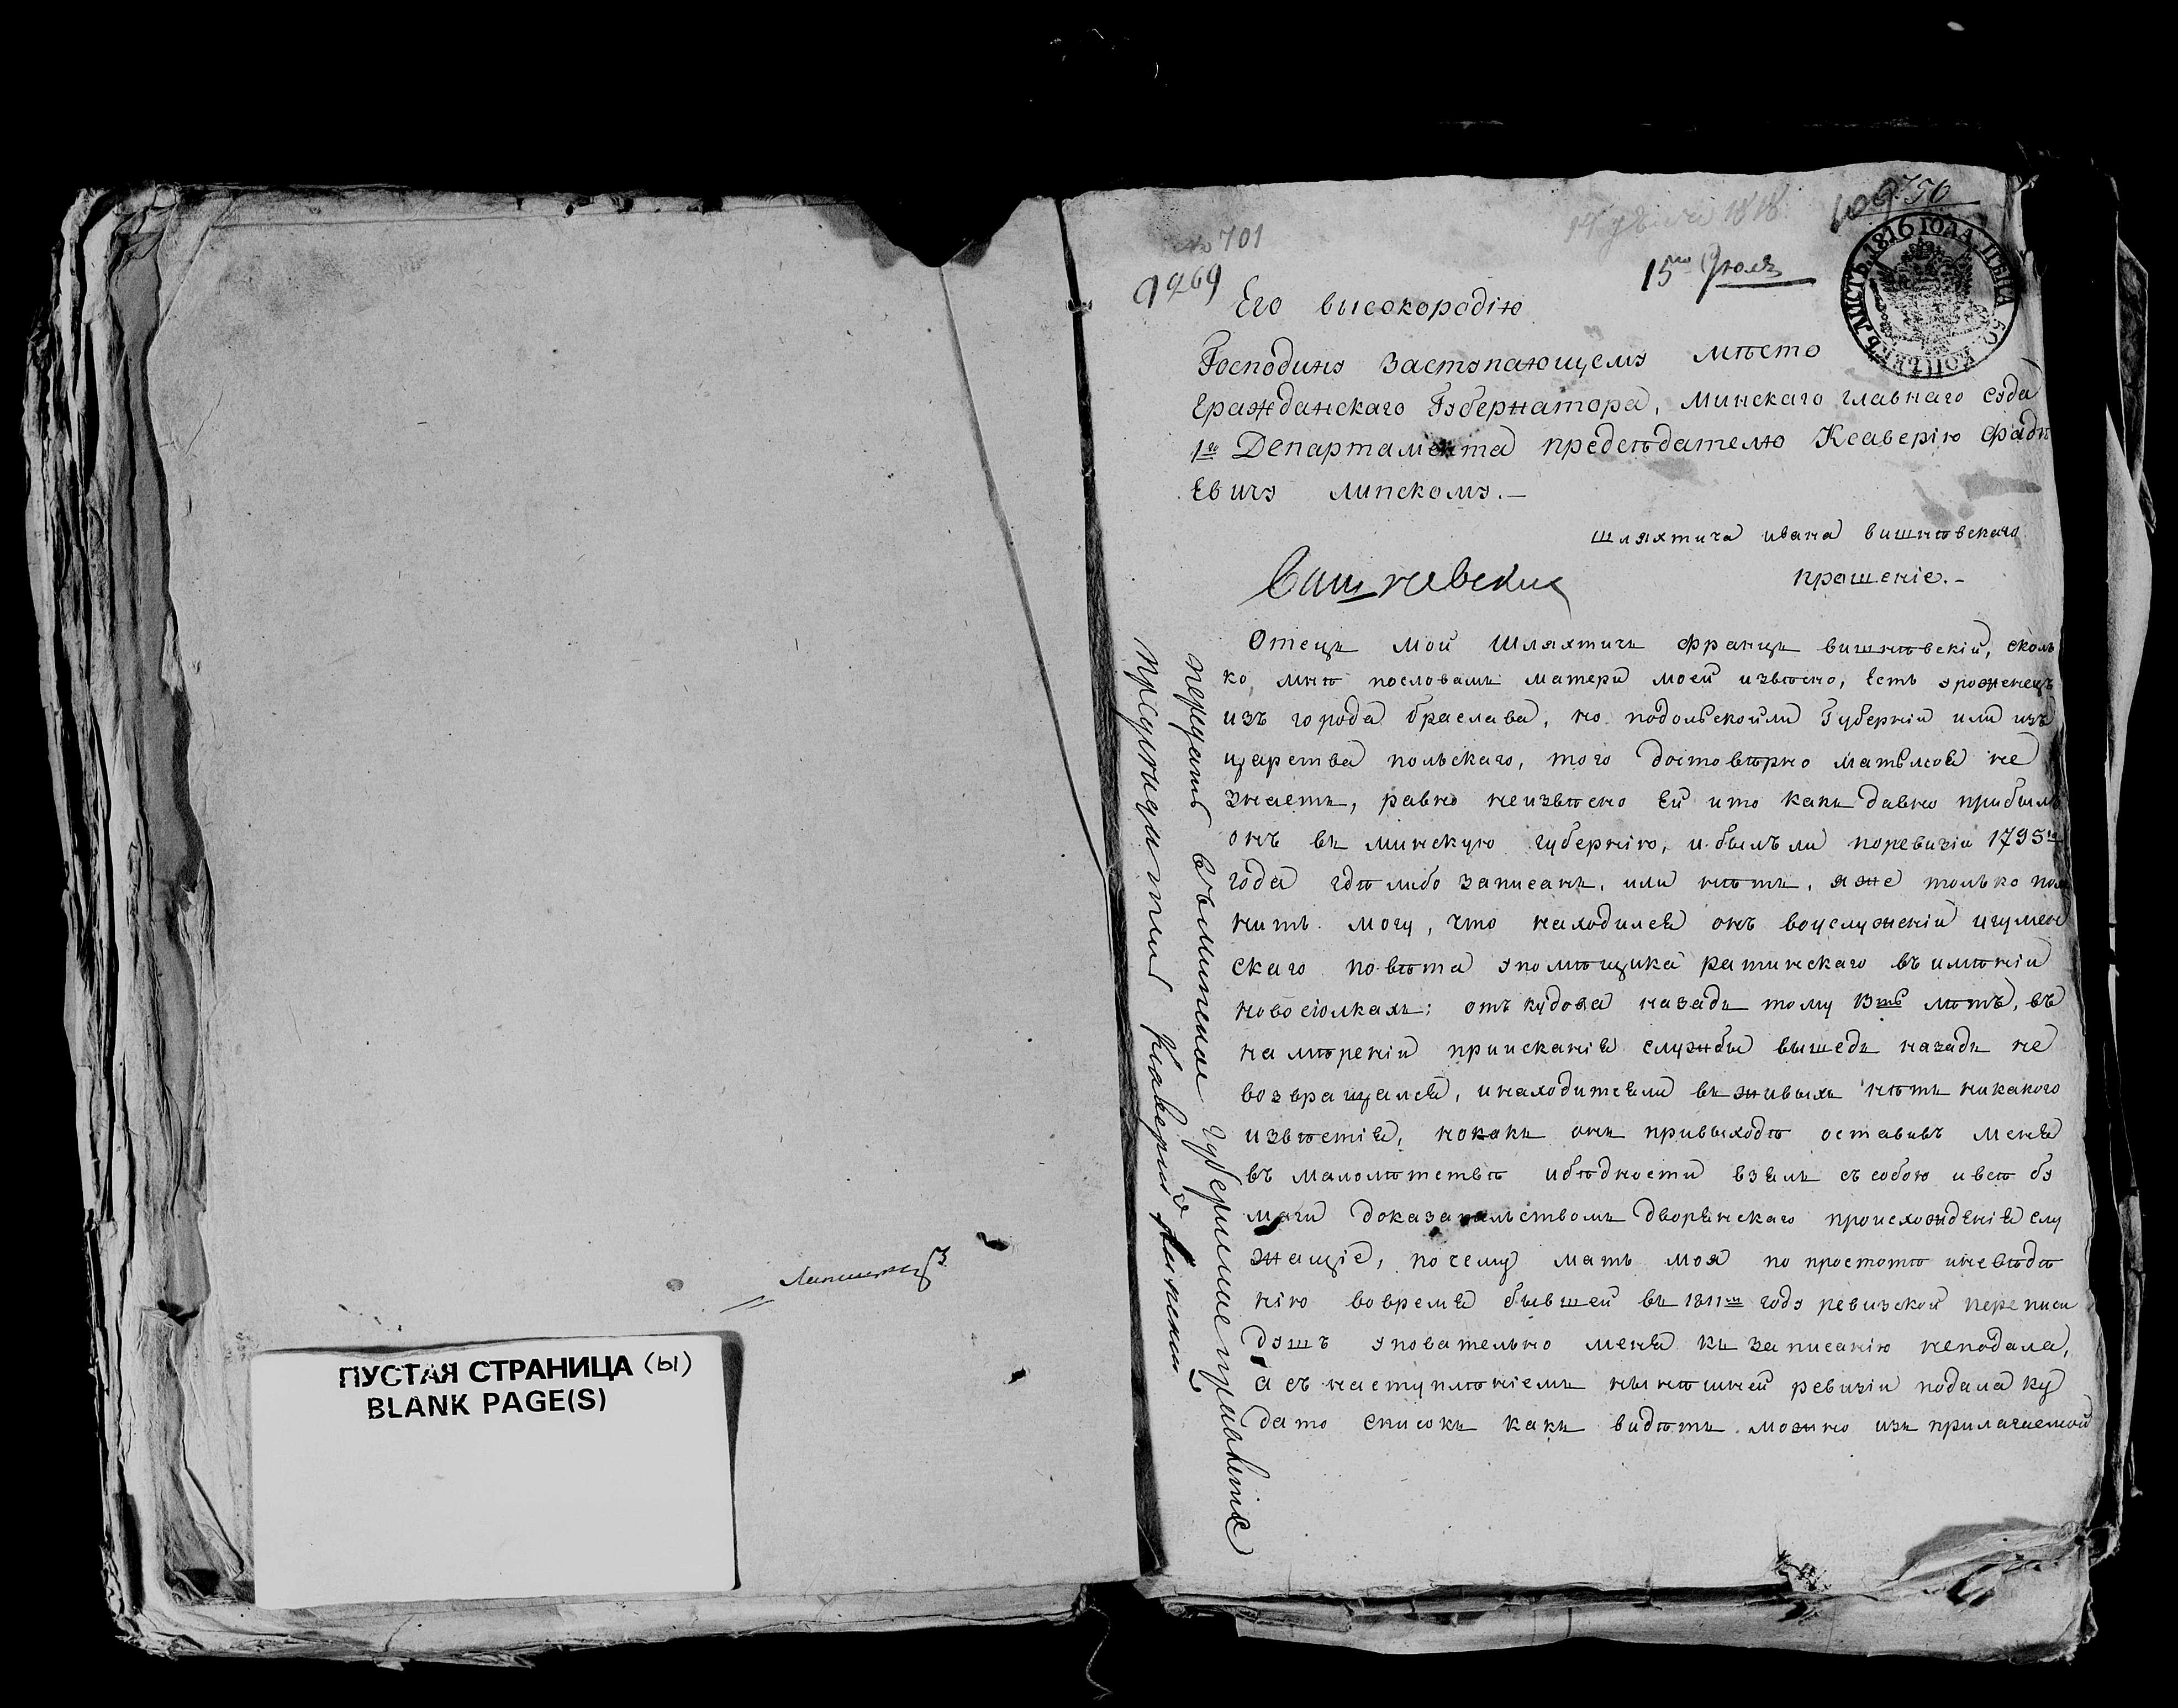 Лапицкий
ПУСТАЯ СТРАНИЦА (Ы)
BLANK PAGE(S)
№ 701
1269
109
756
15го Июля
ЛИСТЪ 1816 ГОДА ЦѢНА 50 КОПѢЕКЪ
Его высокородію
Господину Заступающему мѣсто
Гражданскаго Губернатора, минскаго главнаго суда
1го Департамента предсѣдателю Ксаверію Фадѣ
евичу липскому.—
шляхтича ивана вишнѣвскаго
прашеніе.—
Вишневский
Отецъ мой Шляхтичъ францъ вишнѣвскій, сколь
ко мнѣ пословамъ матери моей извѣсно, Есть уроженецъ
изъ города браслава, но подольскойли Губерніи или изъ
царства польскаго, того достовѣрно матьмоя не
знаетъ, равно неизвѣсно Ей ито какъ давно прибылъ
онъ въ минскую губернію, ибылъ ли поревизіи 1795го
года гдѣ либо записанъ, или нѣтъ, яже только пом
нить могу, что находился онъ воуслуженіи игумен
скаго повѣта упомѣщика ратинскаго въ имѣніи
новосіолкахъ; отъ кудова назадъ тому 13ть лѣтъ, въ
намѣреніи прiисканія службы вышедъ назадъ не
возвращался, инаходитсяли въ живыхъ нѣтъ никакого
извѣстія, нокакъ онъ привыходѣ оставивъ меня
въ малолѣтствѣ ибѣдности взялъ съ собою ивсѣ бу
маги доказательствомъ дворянскаго происхожденія слу
жащіе, почему мать моя по простотѣ иневѣдѣ
нію вовремя бывшей въ 1811мъ году ревизской переписи
душъ уповательно меня къ записанію неподала,
а съ наступлѣніемъ нынѣшней ревизіи подала ку
дато списокъ какъ видѣть можно изъ прилагаемой
передать въ минское губернское правленіе
Ксаверий Липский